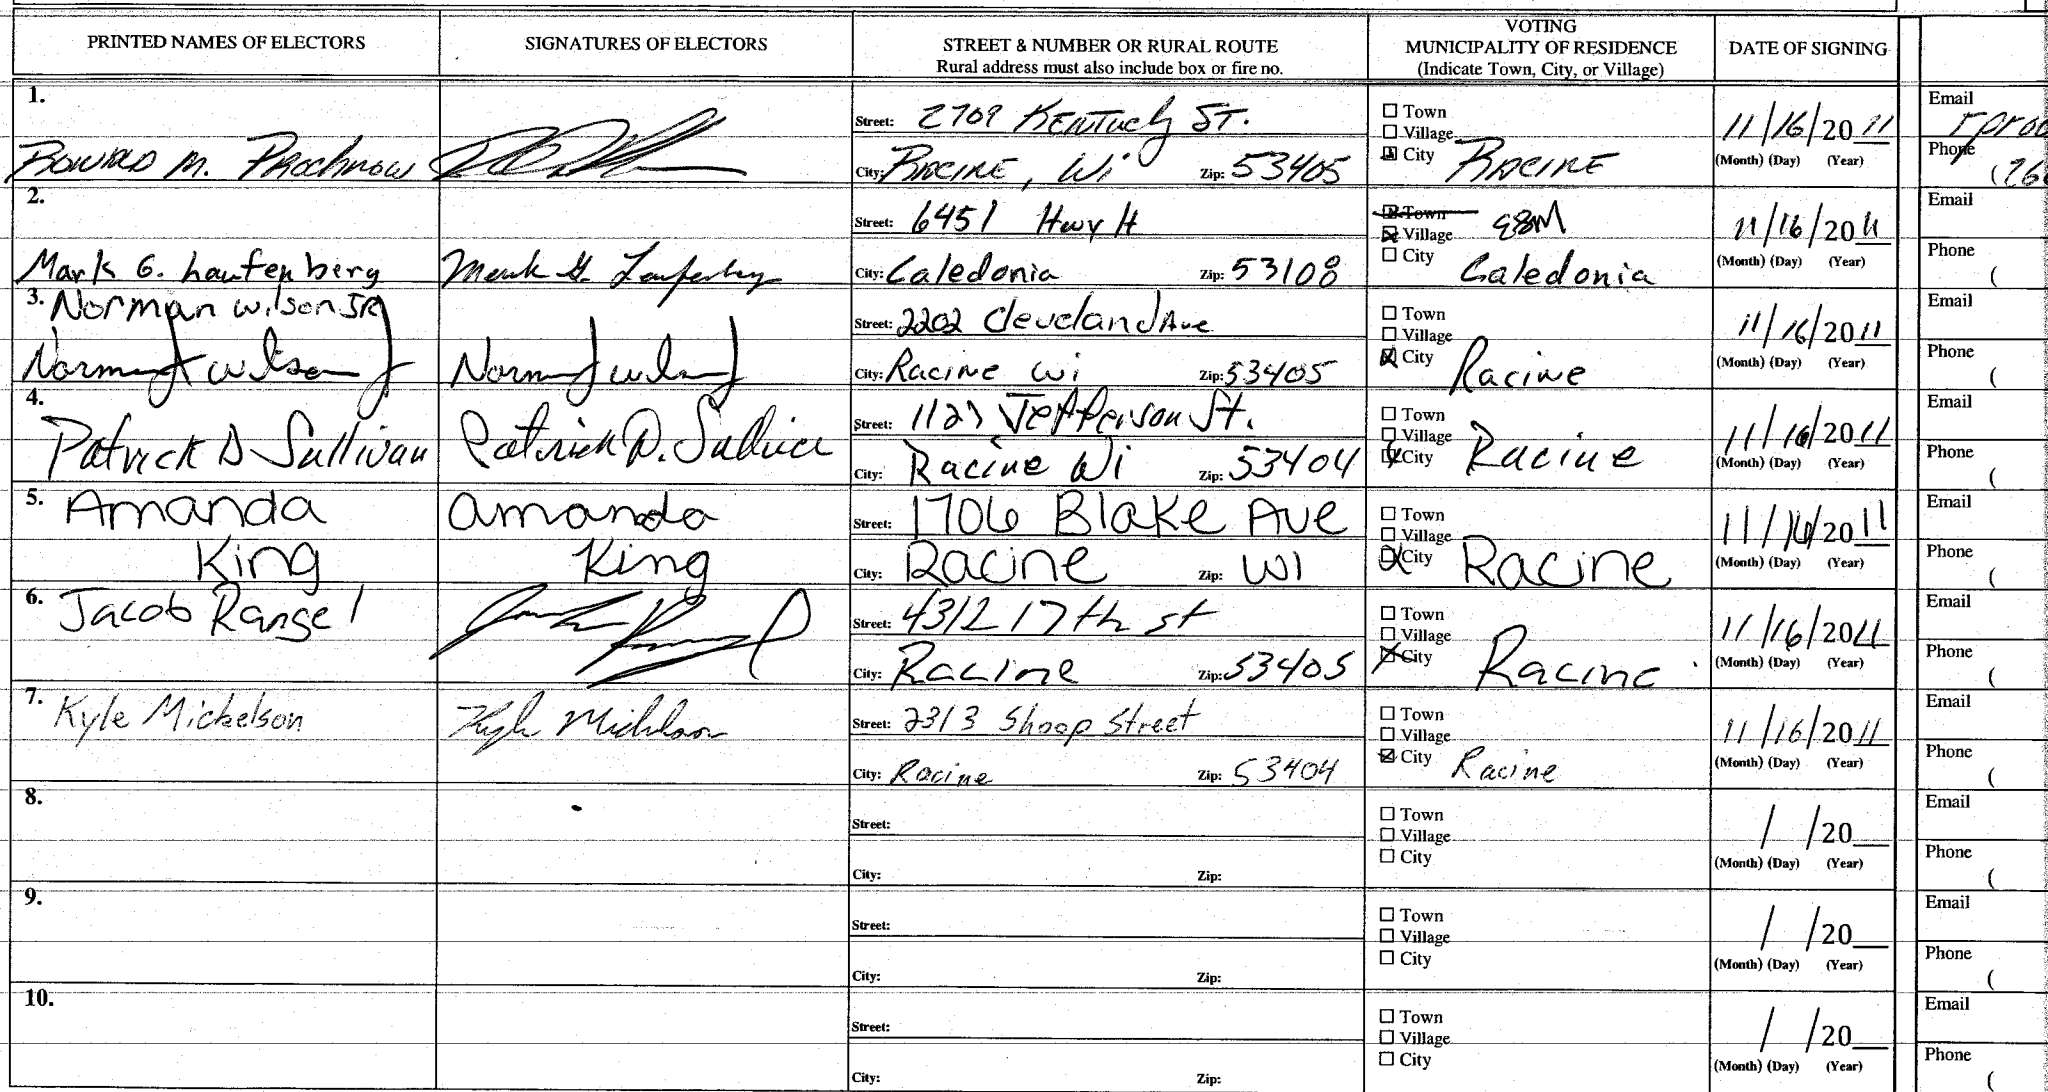 PRINTED NAMES OF ELECTORS
SIGNATURES OF ELECTORS
STREET & NUMBER OR RURAL ROUTE
Rural address must also include box or fire no.
VOTING
MUNICIPALITY OF RESIDENCE
(Indicate Town, City, or Village)
DATE OF SIGNING
1.
M. Prochnow
Street: 2709 Kentucky St.
City: Racine, Wi Zip: 53405
Town
Village
City
Racine
11/16/2011
(Month) (Day) (Year)
Email
Phone
(26
2.
Mark G. Laufenberg
Mark G. Laufenberg
Street: 6451 Hwy H
City: Caledonia Zip: 53108
Town
Village
City
Caledonia
11/16/2011
(Month) (Day) (Year)
Email
Phone
(
3.
Norman Wilson JR
Norman J Wilson J
Norman J Wilson J
Street: 2202 Cleveland Ave
City: Racine Wi Zip: 53405
Town
Village
City
Racine
11/16/2011
(Month) (Day) (Year)
Email
Phone
(
4.
Patrick D Sullivan
Patrick D. Sullivan
Street: Jefferson St.
City: Racine Wi Zip: 53404
Town
Village
City
Racine
11/16/2011
(Month) (Day) (Year)
Email
Phone
(
5.
Amanda
King
Amanda
King
Street: 1706 Blake Ave
City: Racine Zip: WI
Town
Village
City
Racine
11/16/2011
(Month) (Day) (Year)
Email
Phone
(
6.
Jacob Rangel
Street: 4312 17th st
City: Racine Zip: 53405
Town
Village
City
Racine
11/16/2011
(Month) (Day) (Year)
Email
Phone
(
7.
Kyle Mickelson
Kyle Mickelson
Street: 2313 Shoop Street
City: Racine Zip: 53404
Town
Village
City
Racine
11/16/2011
(Month) (Day) (Year)
Email
Phone
(
8.
Street:
City: Zip:
Town
Village
City
/ /20__
(Month) (Day) (Year)
Email
Phone
(
9.
Street:
City: Zip:
Town
Village
City
/ /20__
(Month) (Day) (Year)
Email
Phone
(
10.
Street:
City: Zip:
Town
Village
City
/ /20__
(Month) (Day) (Year)
Email
Phone
(